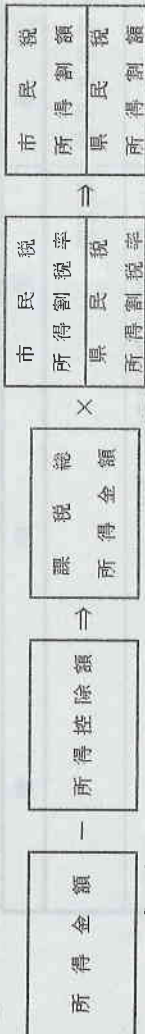 所得金額
－
所得控除額
⇒
課税総
所得金額
×
市民税
所得割税率
県民税
所得割税率
⇒
市民税
所得割額
県民税
所得割額